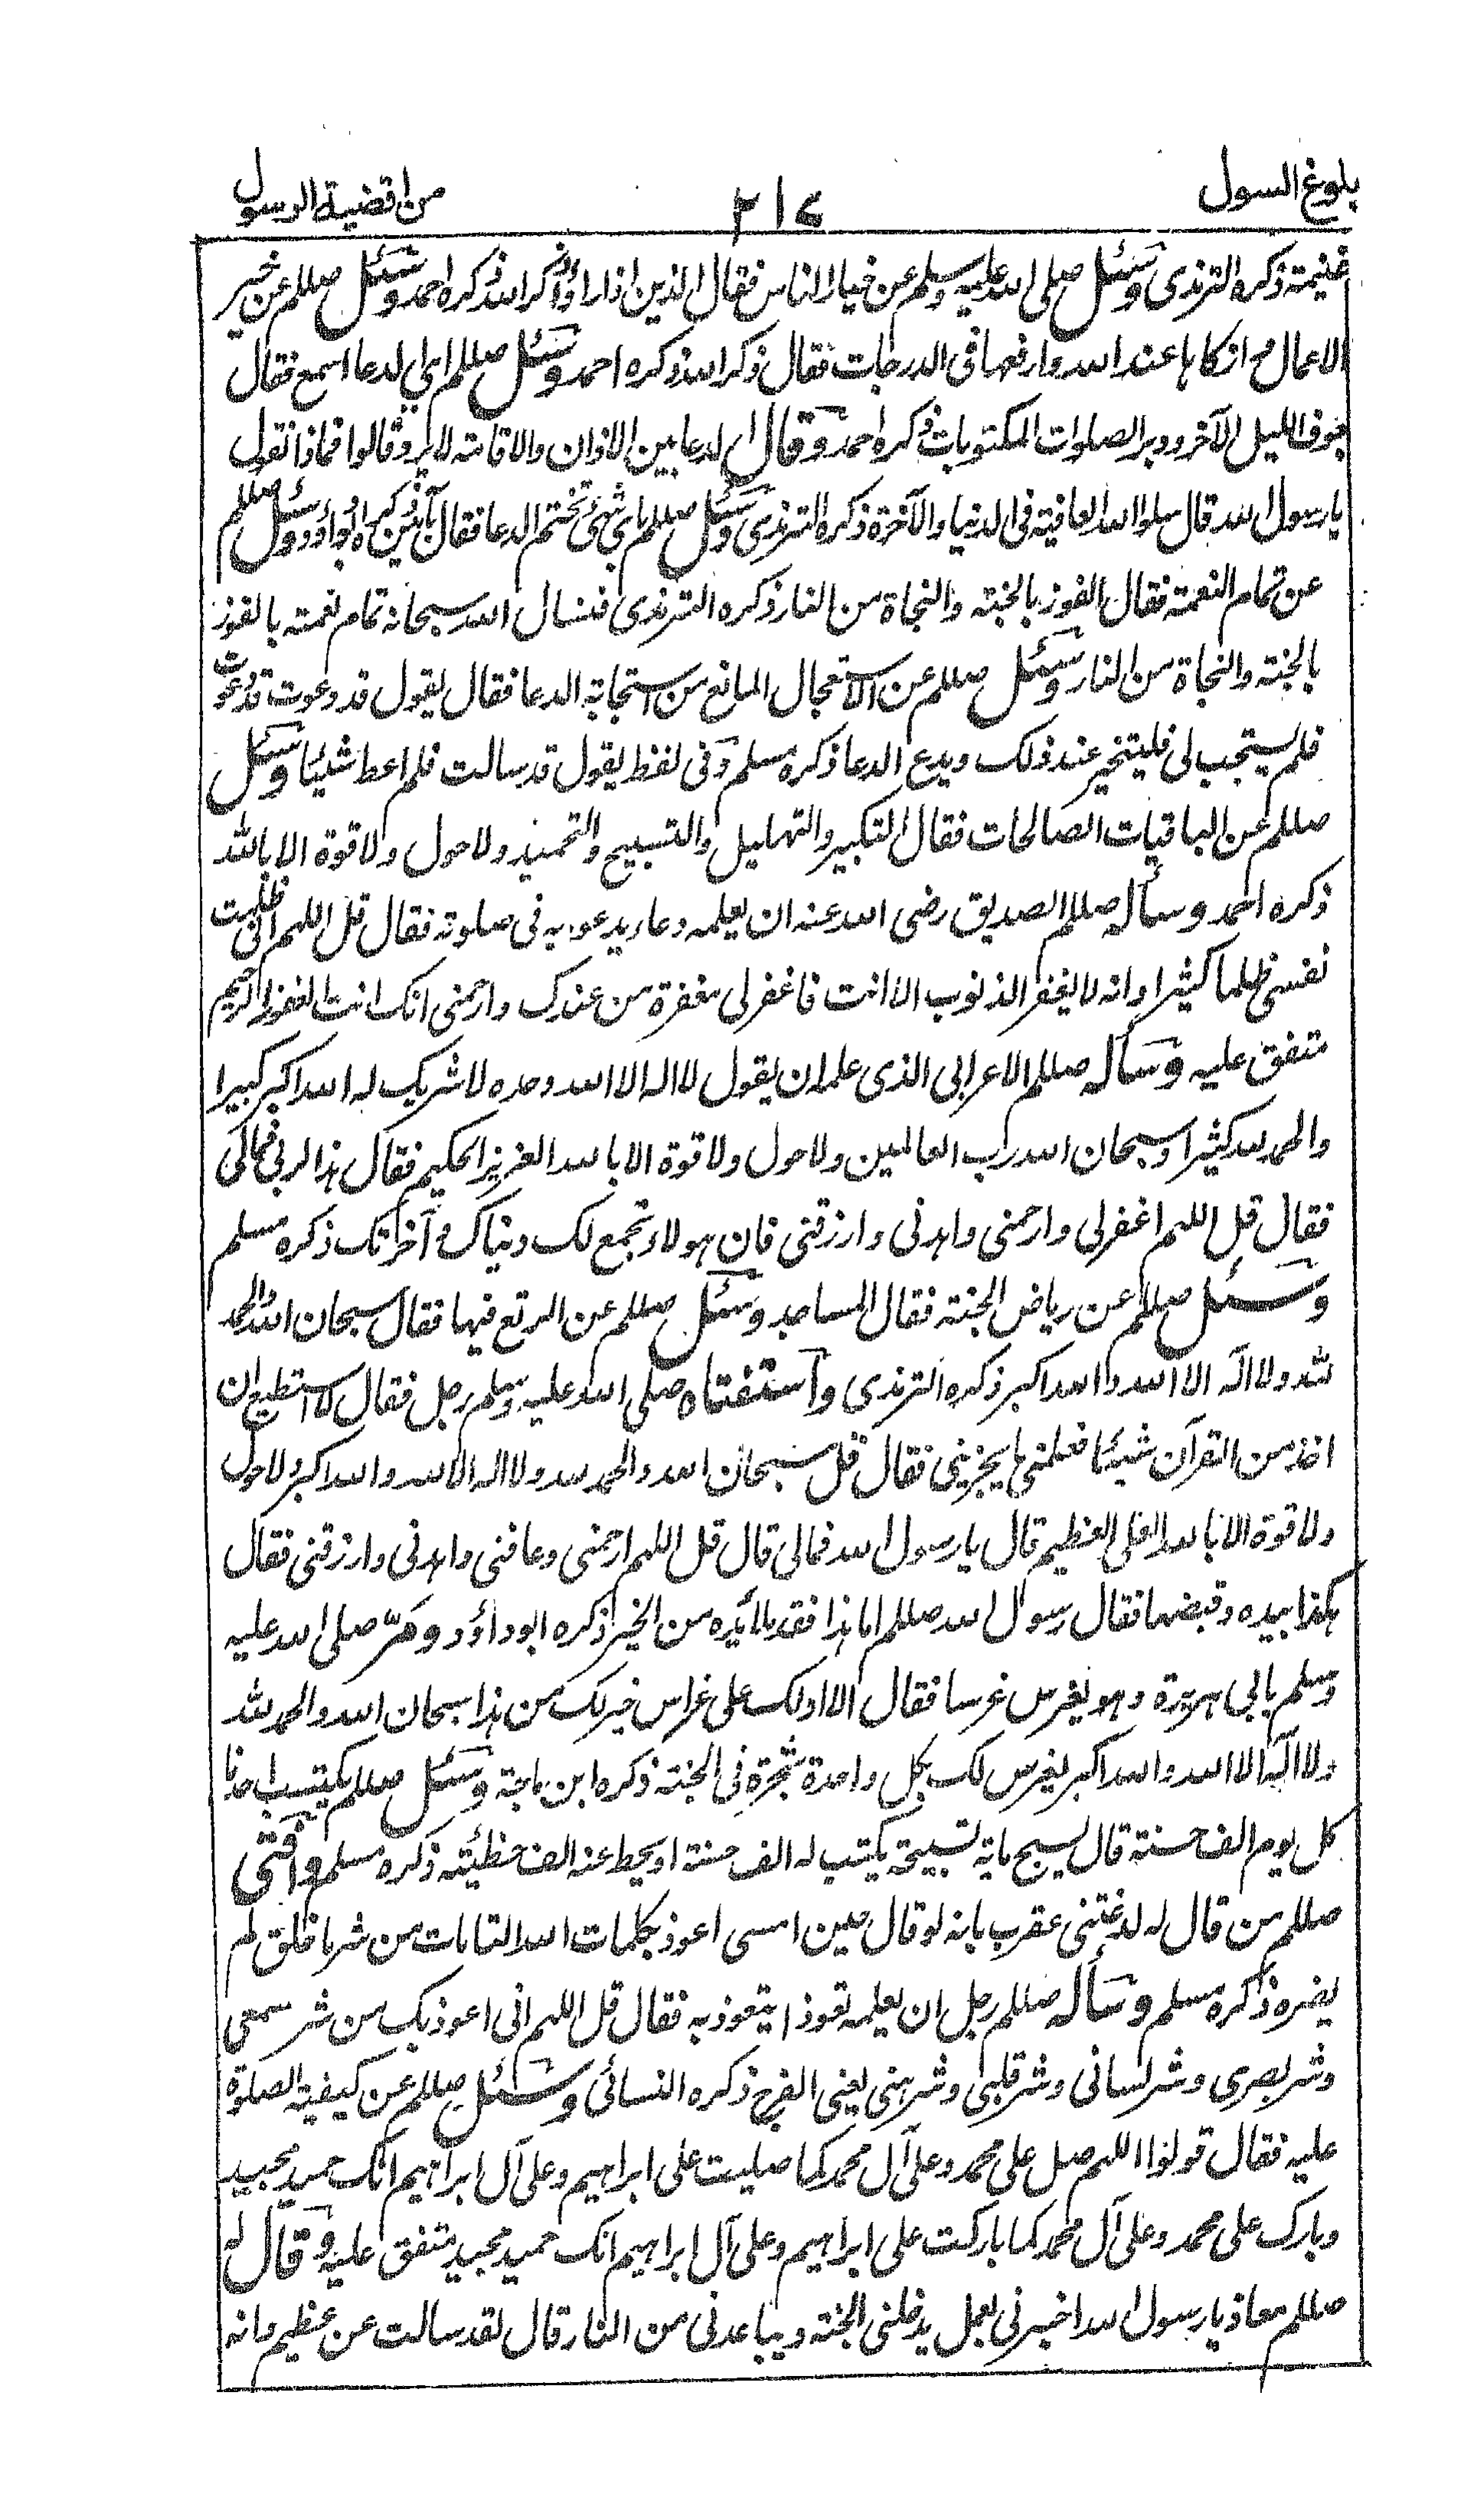 بلوغ السول ٢١٤ من اقضية الرسول
غنيمته ذكره الترمذى وسئل صلى الله عليه وسلم عن خيار الناس فقال الذين اذا رأوا ذكر الله ذكره احمد وسئل صللم عن خير
الاعمال وازكاها عند الله وارفعها فى الدرجات فقال ذكر الله ذكره احمد وسئل صللم اى الدعا اسمع فقال
جوف الليل الآخر ودبر الصلوات المكتوبات ذكره احمد وقال الدعا بين الاذان والاقامة لا يرد قالوا فماذا نقول
يا رسول الله قال سلوا الله العافية فى الدنيا والآخرة ذكره الترمذى وسئل صللم باى شئ تختم الدعا فقال بآمين ذكره ابوداؤد وسئل صللم
عن تمام النعمة فقال الفوز بالجنة والنجاة من النار ذكره الترمذى فنسال الله سبحانه تمام نعمته بالفوز
بالجنة والنجاة من النار وسئل صللم عن الاستعجال المانع من استجابة الدعا فقال يقول قد دعوت قد دعوت
فلم يستجب لى فليتخير عند ذلك ويدع الدعا ذكره مسلم وفى لفظ يقول قد سالت فلم اعط شيئا وسئل
صللم عن الباقيات الصالحات فقال التكبير والتهليل والتسبيح والتحميد ولا حول ولا قوة الا بالله
ذكره احمد وسأله صللم الصديق رضى الله عنه ان يعلمه دعاء يدعو به فى صلوته فقال قل اللهم انى ظلمت
نفسى ظلما كثيرا وانه لا يغفر الذنوب الا انت فاغفر لى مغفرة من عندك وارحمنى انك انت الغفور الرحيم
متفق عليه وسأله صللم الاعرابى الذى علمه ان يقول لا اله الا الله وحده لا شريك له الله اكبر كبيرا
والحمد لله كثيرا وسبحان الله رب العالمين ولا حول ولا قوة الا بالله العزيز الحكيم فقال هذا لربى فمالى
فقال قل اللهم اغفر لى وارحمنى واهدنى وارزقنى فان هولاء تجمع لك دنياك وآخرتك ذكره مسلم
وسئل صللم عن رياض الجنة فقال المساجد وسئل صللم عن الرتع فيها فقال سبحان الله والحمد
لله ولا اله الا الله والله اكبر ذكره الترمذى واستفتاه صلى الله عليه وسلم رجل فقال لا استطيع ان
اخذ من القرآن شيئا فعلمنى ما يجزينى فقال قل سبحان الله والحمد لله ولا اله الا الله والله اكبر ولا حول
ولا قوة الا بالله العلى العظيم قال يا رسول الله فمالى قال قل اللهم ارحمنى وعافنى واهدنى وارزقنى فقال
هكذا بيده وقبضها فقال رسول الله صللم اما هذا فقد ملأ يده من الخير ذكره ابوداؤد ومرّ صلى الله عليه
وسلم بابى هريرة وهو يغرس غرسا فقال الا ادلك على غراس خير لك من هذا سبحان الله والحمد لله
ولا اله الا الله والله اكبر يغرس لك بكل واحدة شجرة فى الجنة ذكره ابن ماجة وسئل صللم يكتسب احدنا
كل يوم الف حسنة قال يسبح ماية تسبيحة يكتب له الف حسنة او يحط عنه الف خطيئته ذكره مسلم وافتى
صللم من قال له لدغتنى عقرب بانه لو قال حين امسى اعوذ بكلمات الله التامات من شر ما خلق لم
يضره ذكره مسلم وسأله صللم رجل ان يعلمه تعوذا يتعوذ به فقال قل اللهم انى اعوذ بك من شر سمعى
وشر بصرى وشر لسانى وشر قلبى وشر هنى يعنى الفرج ذكره النسائى وسئل صللم عن كيفية الصلوة
عليه فقال قولوا اللهم صل على محمد وعلى آل محمد كما صليت على ابراهيم وعلى آل ابراهيم انك حميد مجيد
وبارك على محمد وعلى آل محمد كما باركت على ابراهيم وعلى آل ابراهيم انك حميد مجيد متفق عليه وقال له
صللم معاذ يا رسول الله اخبرنى بعمل يدخلنى الجنة ويباعدنى من النار قال لقد سالت عن عظيم وانه